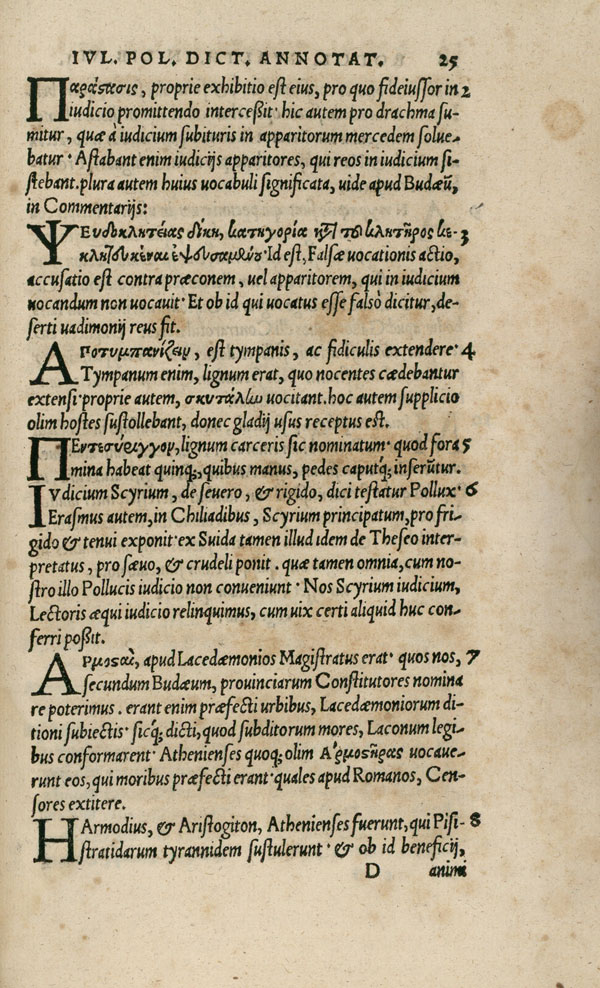 IVL. POL. DICT. ANNOTAT. 25
Παράστασις, proprie exhibitio est eius, pro quo fideiussor in 2
iudicio promittendo intercessit· hic autem pro drachma su-
mitur, quæ à iudicium subituris in apparitorum mercedem solue-
batur· Astabant enim iudicijs apparitores, qui reos in iudicium si-
stebant. plura autem huius uocabuli significata, uide apud Budæũ,
in Commentarijs:
ΨΕυδοκλητείας δίκη, κατηγορία τοῦ κλητῆρος 3
Id est, Falsæ uocationis actio,
accusatio est contra præconem, uel apparitorem, qui in iudicium
uocandum non uocauit· Et ob id qui uocatus esse falsò dicitur, de-
serti uadimonij reus fit.
ΑΠοτυμπανίζειν, est tympanis, ac fidiculis extendere· 4
Tympanum enim, lignum erat, quo nocentes cædebantur
extensi· proprie autem, σκυτάλω uocitant. hoc autem supplicio
olim hostes sustollebant, donec gladij usus receptus est.
ΠΕντεσύριγγον, lignum carceris sic nominatum· quod fora 5
mina habeat quinq;, quibus manus, pedes caputq; inserũtur.
IVdicium Scyrium, de seuero, & rigido, dici testatur Pollux· 6
Erasmus autem, in Chiliadibus, Scyrium principatum, pro fri-
gido & tenui exponit· ex Suida tamen illud idem de Theseo inter-
pretatus, pro sæuo, & crudeli ponit. quæ tamen omnia, cum no-
stro illo Pollucis iudicio non conueniunt· Nos Scyrium iudicium,
Lectoris æqui iudicio relinquimus, cum uix certi aliquid huc con-
ferri possit.
ΑΡμοσαὶ, apud Lacedæmonios Magistratus erat· quos nos, 7
secundum Budæum, prouinciarum Constitutores nomina
re poterimus. erant enim præfecti urbibus, Lacedæmoniorum di-
tioni subiectis· sicq; dicti, quod subditorum mores, Laconum legi-
bus conformarent· Athenienses quoq; olim Ἁρμοστῆρας uocaue-
runt eos, qui moribus præfecti erant· quales apud Romanos, Cen-
sores extitere.
HArmodius, & Aristogiton, Athenienses fuerunt, qui Pisi- 8
stratidarum tyrannidem sustulerunt· & ob id beneficij,
D animi